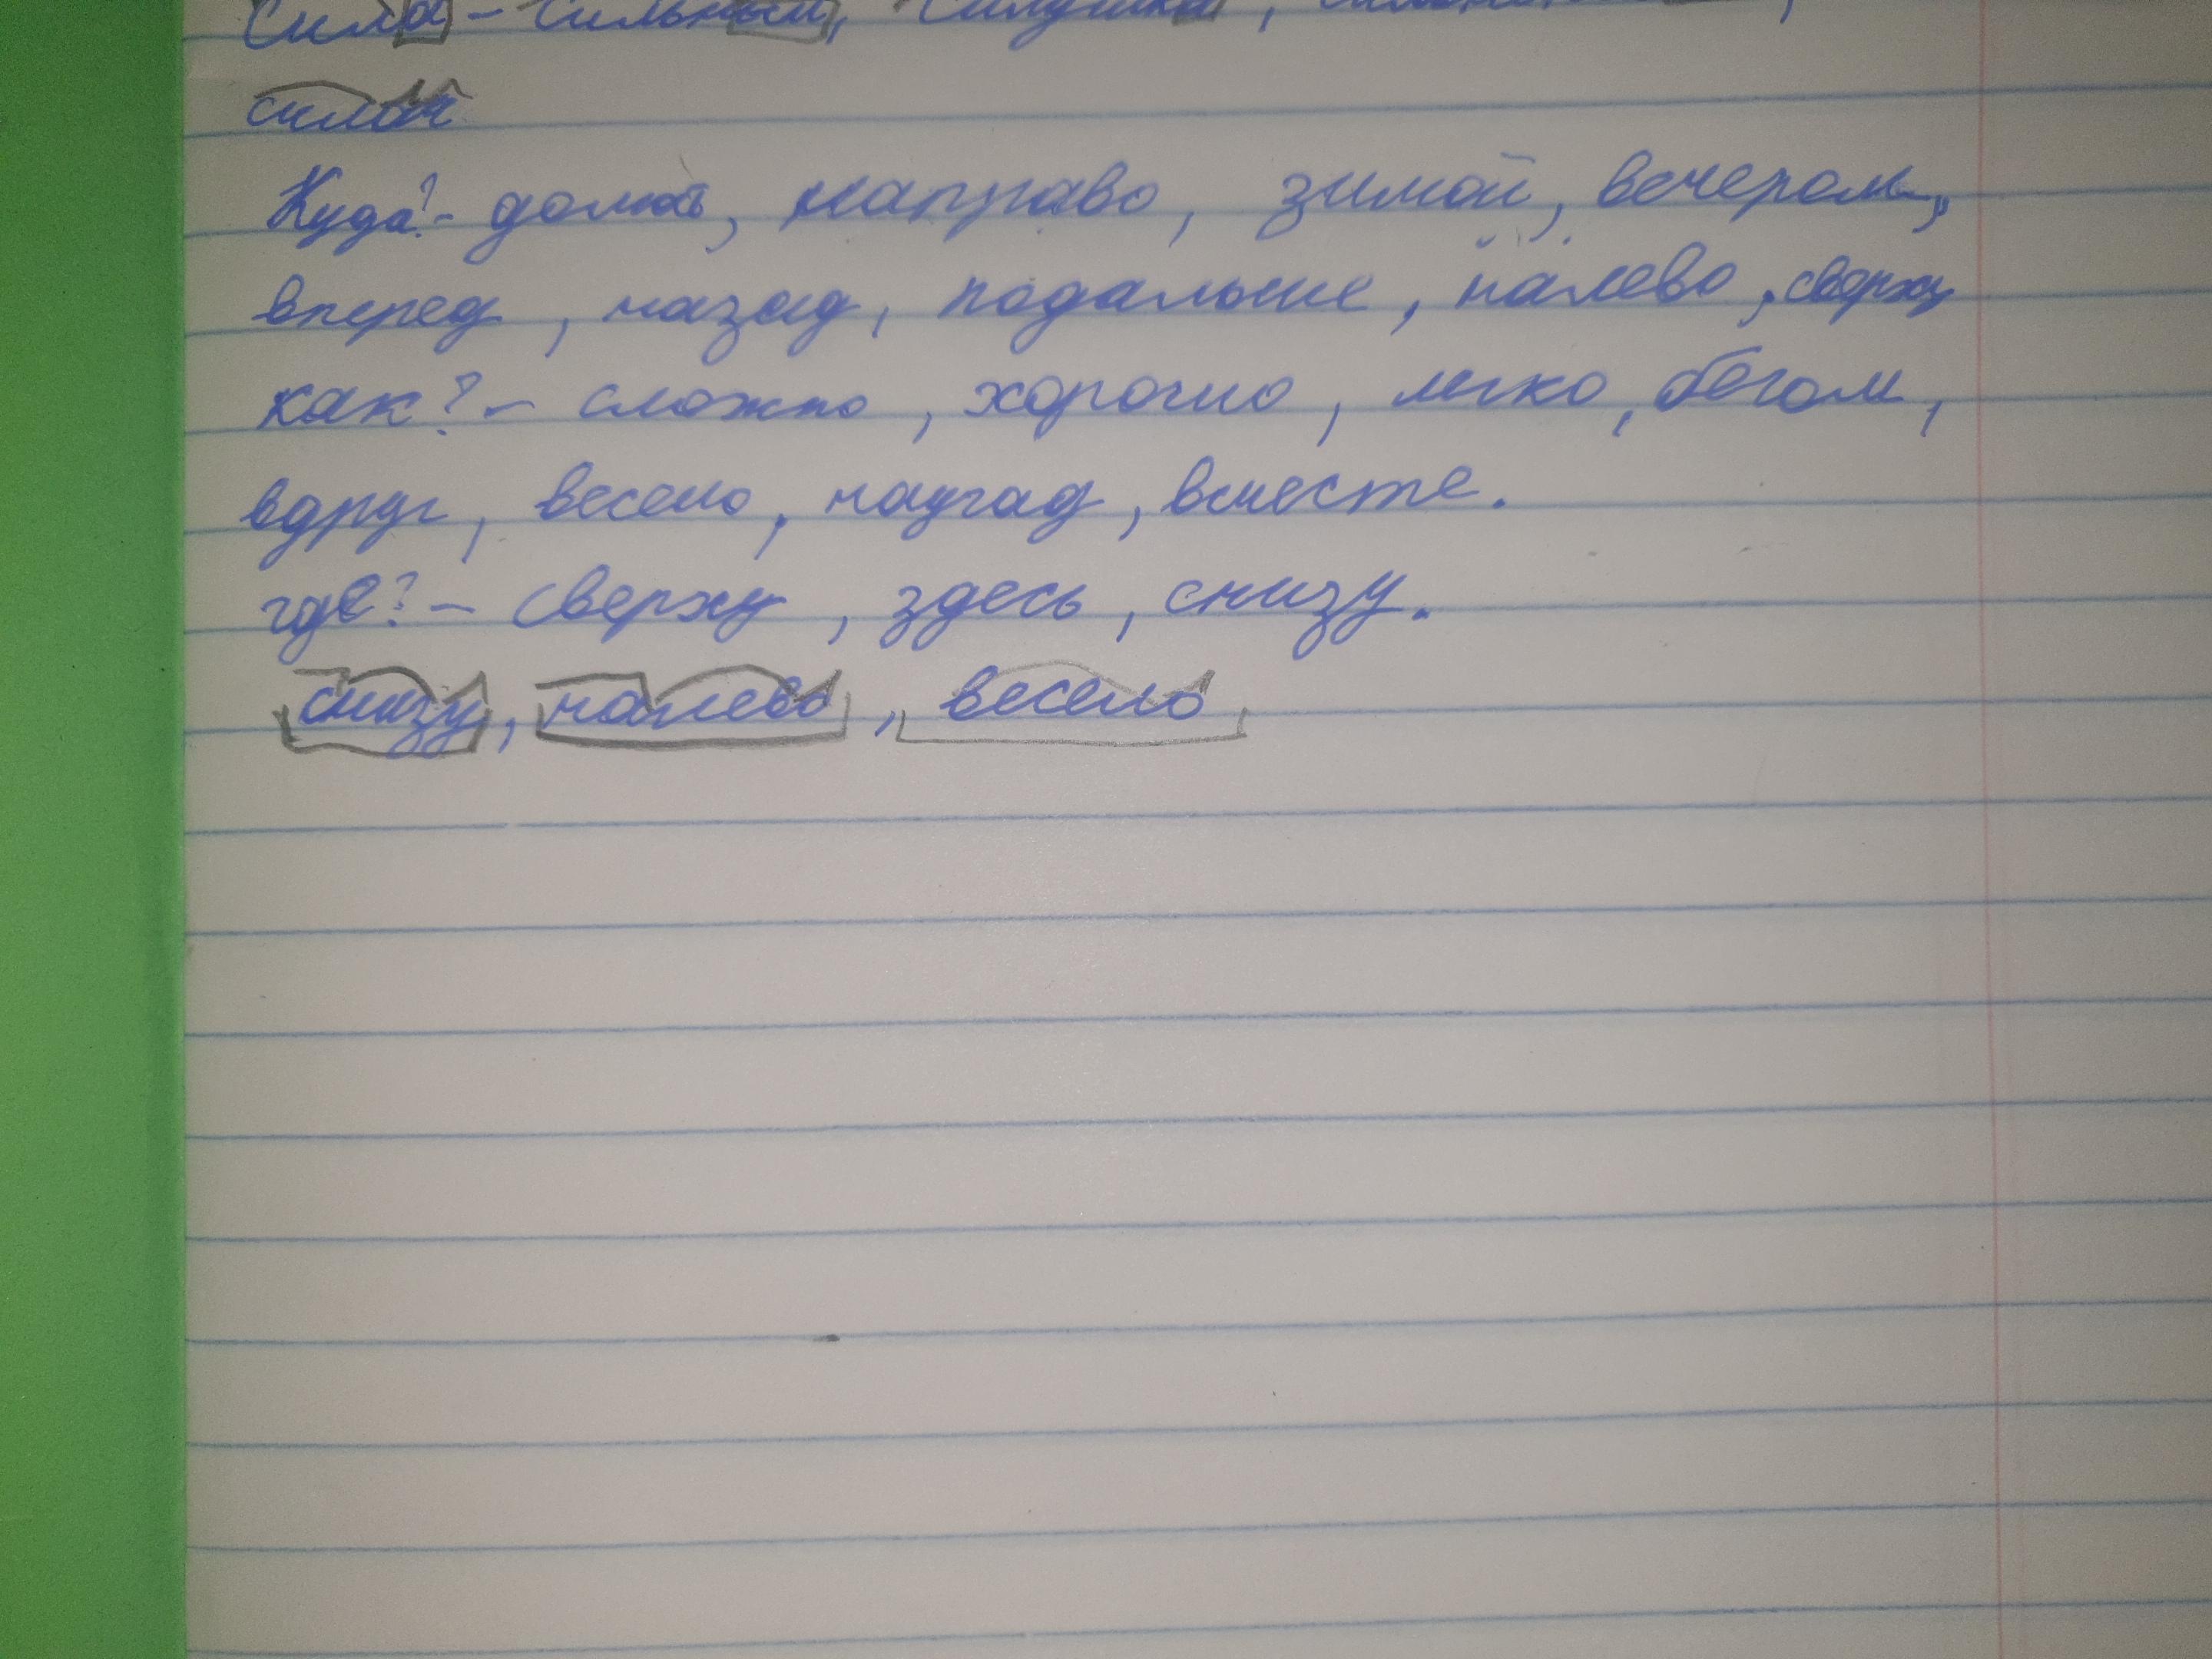 Сила - сильный, силушка,
силач
Куда? - домой, направо, зимой, вечером,
вперед, назад, подальше, налево, сверху
как? - сложно, хорошо, легко, бегом,
вдруг, весело, наугад, вместе.
где? - сверху, здесь, снизу.
снизу, налево, весело